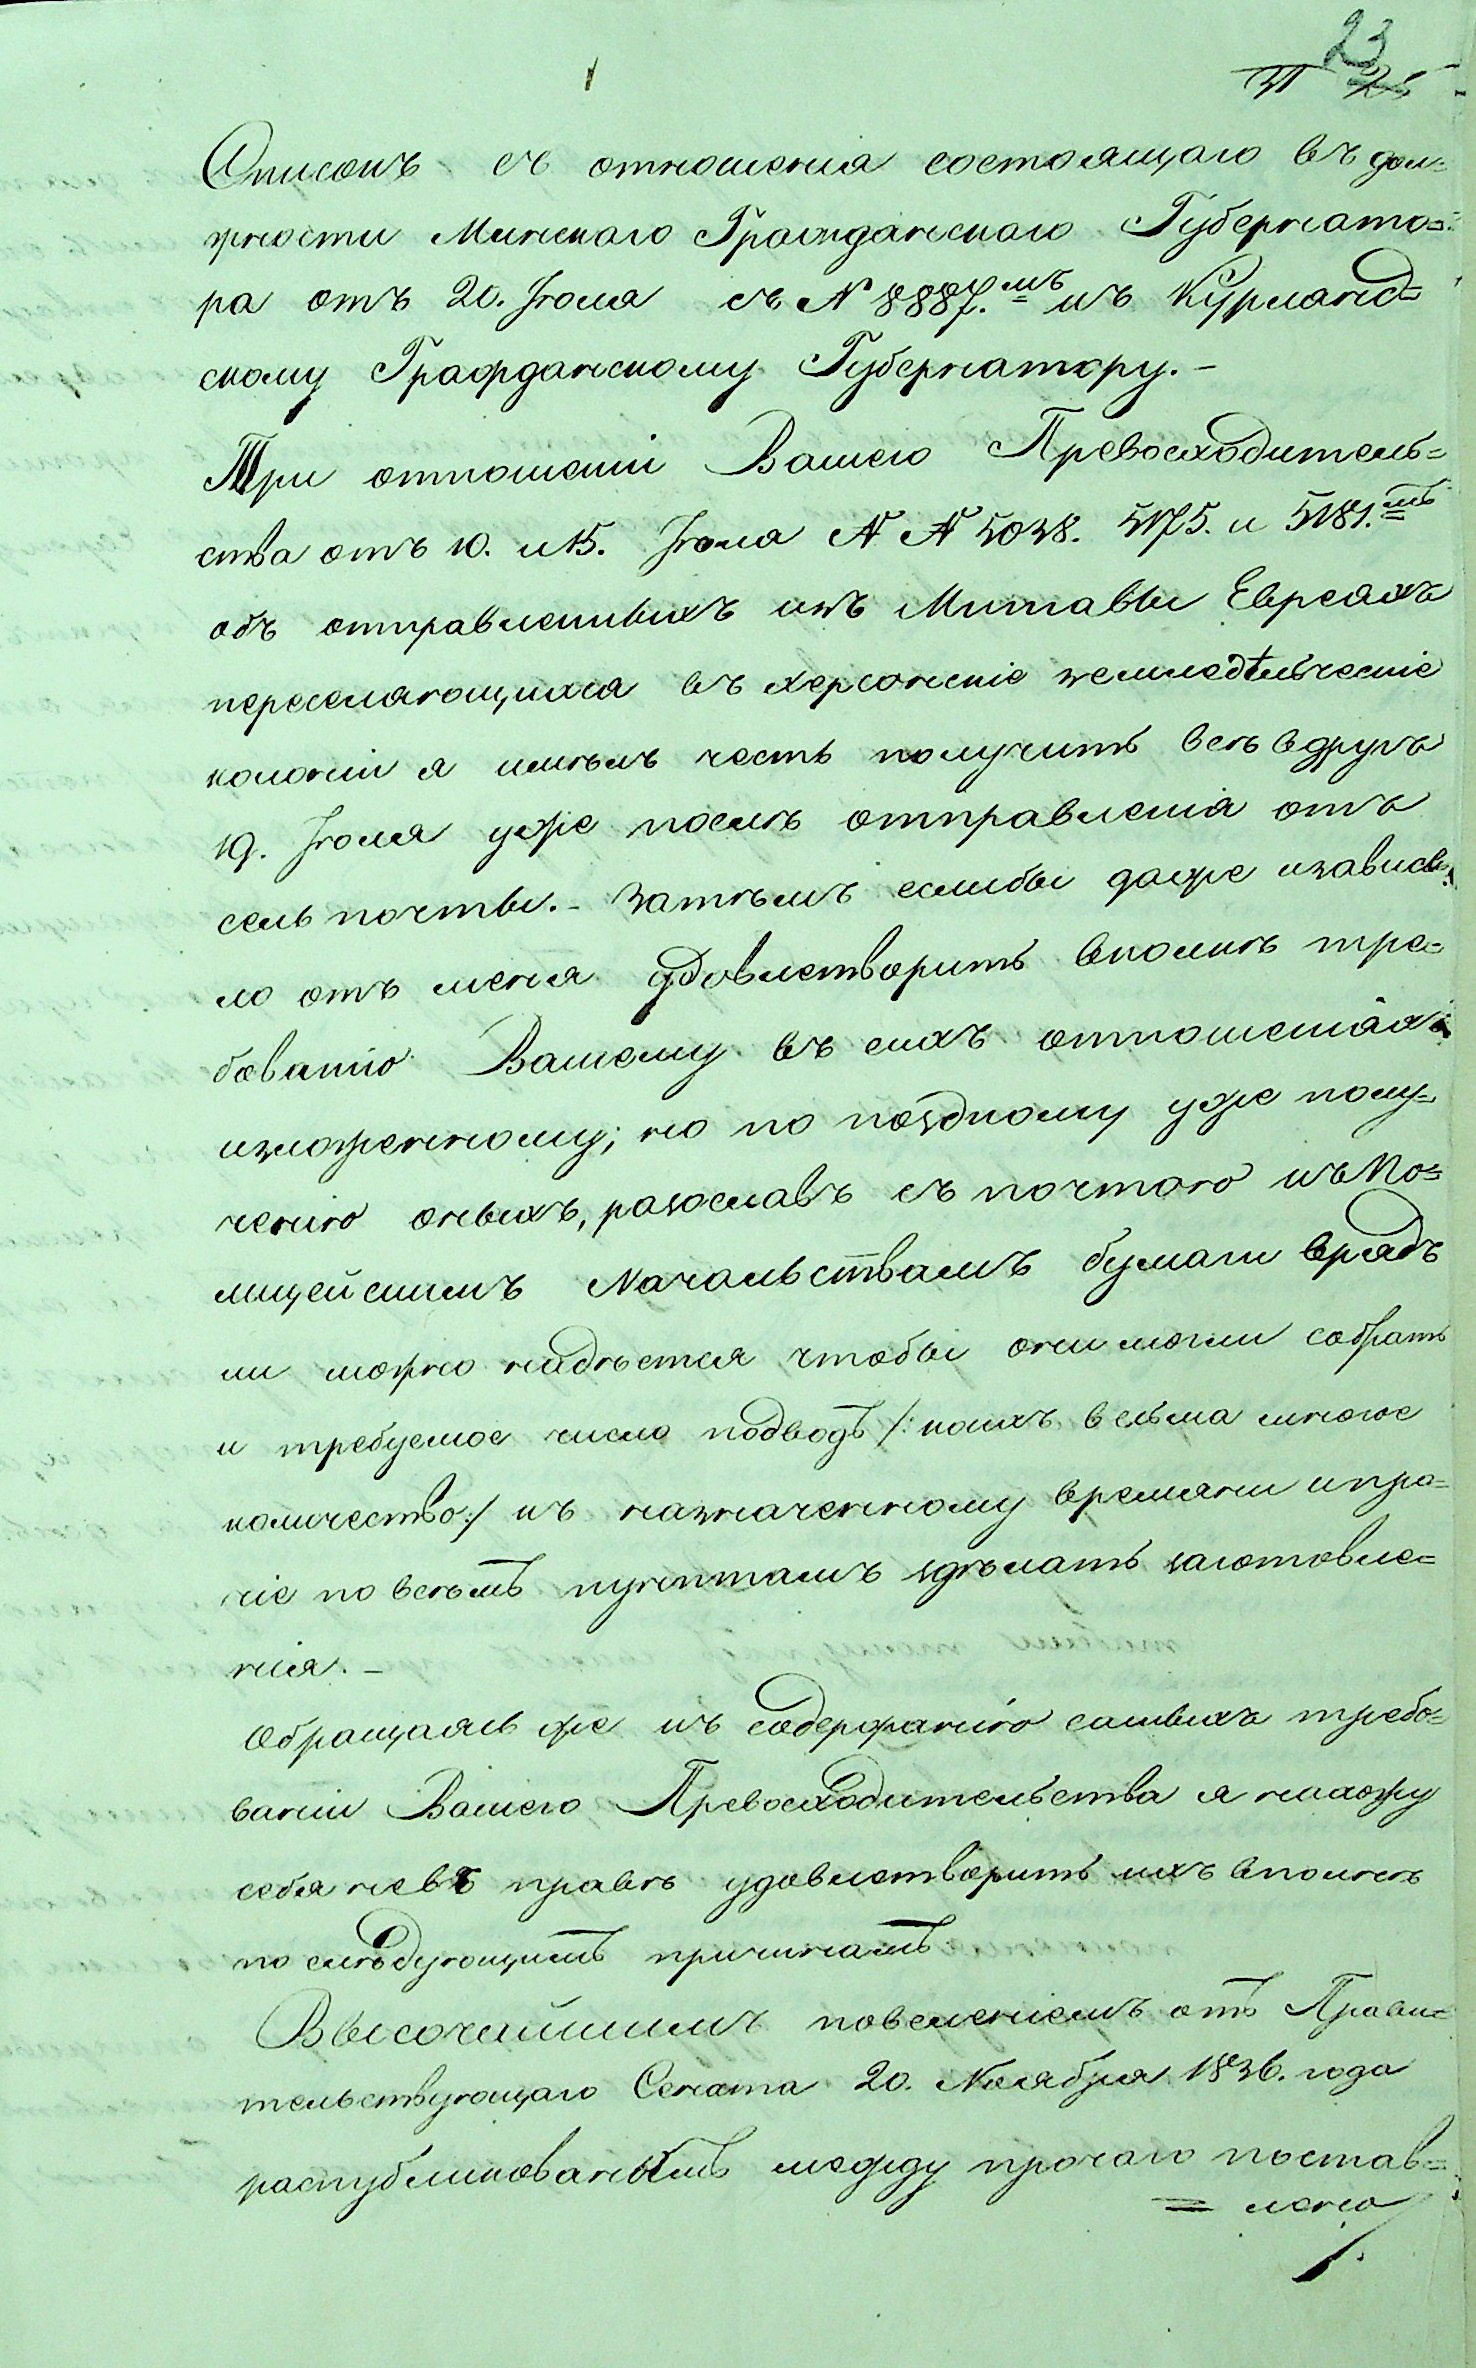 23
Списокъ съ отношенія состоящаго въ дол=
жности Минскаго Гражданскаго Губернато=
ра отъ 20. Іюля съ N 8887.мъ къ Курланд=
скому Гражданскому Губернатору.-
При отношеніи Вашего Превосходитель=
ства отъ 10. и 15. Іюля N N 5038. 5175. и 5181.мъ
объ отправленныхъ изъ Митавы Евреяхъ
переселяющихся въ херсонскіе земледѣльческіе
колоніи я имѣлъ честь получить всѣ вдругъ
19. Іюля уже послѣ отправленія отъ
сель почты.- Затѣмъ еслибы даже и зависѣ=
ло отъ меня удовлетворить вполнѣ тре=
бованію Вашему въ сихъ отношеніяхъ
изложенному; но по поздному уже полу=
ченію оныхъ, разославъ съ почтою къ По=
лицейскимъ Начальствамъ бумаги врядъ
ли можно надѣется чтобы они могли собрать
и требуемое число подводъ /: коихъ весьма многое
количество :/ къ назначенному времяни и про=
чіе по всѣмъ пунктамъ здѣлать заготовле=
нія.-
Обращаясь же къ содержанію самыхъ требо=
ваній Вашего Превосходительства я нахожу
себя невъ правѣ удовлетворить ихъ вполнѣ
по слѣдующимъ причинамъ
Высочайшимъ повеленіемъ отъ Прави=
тельствующаго Сената 20. Ноября 1836. года
распубликованнымъ между прочаго постав=
= лено